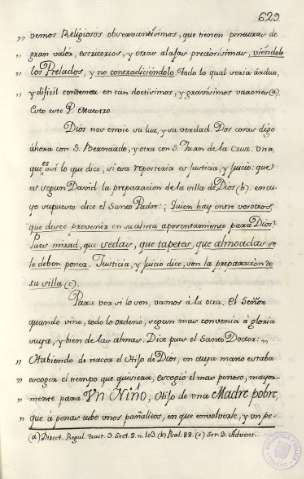 629.
" vemos Religiosos observantísimos, que tienen pinturas de
" gran valor, escritorios, y otras alajas preciosísimas, viéndolo
" los Prelados, y no contradiciéndolo. Todo lo qual sería árdua,
" y difícil condenar en tan doctísimos, y gravísimos varones (a).
Esto este P. Maestro.
Dios nos envie su luz, y su verdad. Dos cosas digo
ahora con S. Bernardo, y otra con S. Juan de la Cruz. Una
que es así lo que dice, si esa reportaría es Justicia, y Juicio: que
es segun David la preparacion de la silla de Dios (b) en cu
yo supuesto dice el Santo Padre: Quien hay entre vosotros,
que desee prevenir en su alma aparentamiento para Dios?
Pues mirad, que sedas, que tapetes, que almoadas se
le deben poner. Justicia, y Juicio dice, son la preparacion de
su silla (c).
Para ver si lo son, vamos á la otra. El Señor
quando vino, todo lo ordenó, segun mas convenia á gloria
suya, y bien de las almas. Dice pues el Santo Doctor:
" Habiendo de nacer el Hijo de Dios, en cuya mano estaba
" escoger el tiempo que quisiera, escogió el mas penoso, mayor-
" mente para Un Niño, Hijo de una Madre pobre,
" que á penas tubo unos pañalitos, en que envolverle, y un pe-
(a) Direct. Regul. (b) Psal. 88. (c) Ser. D. Advent.